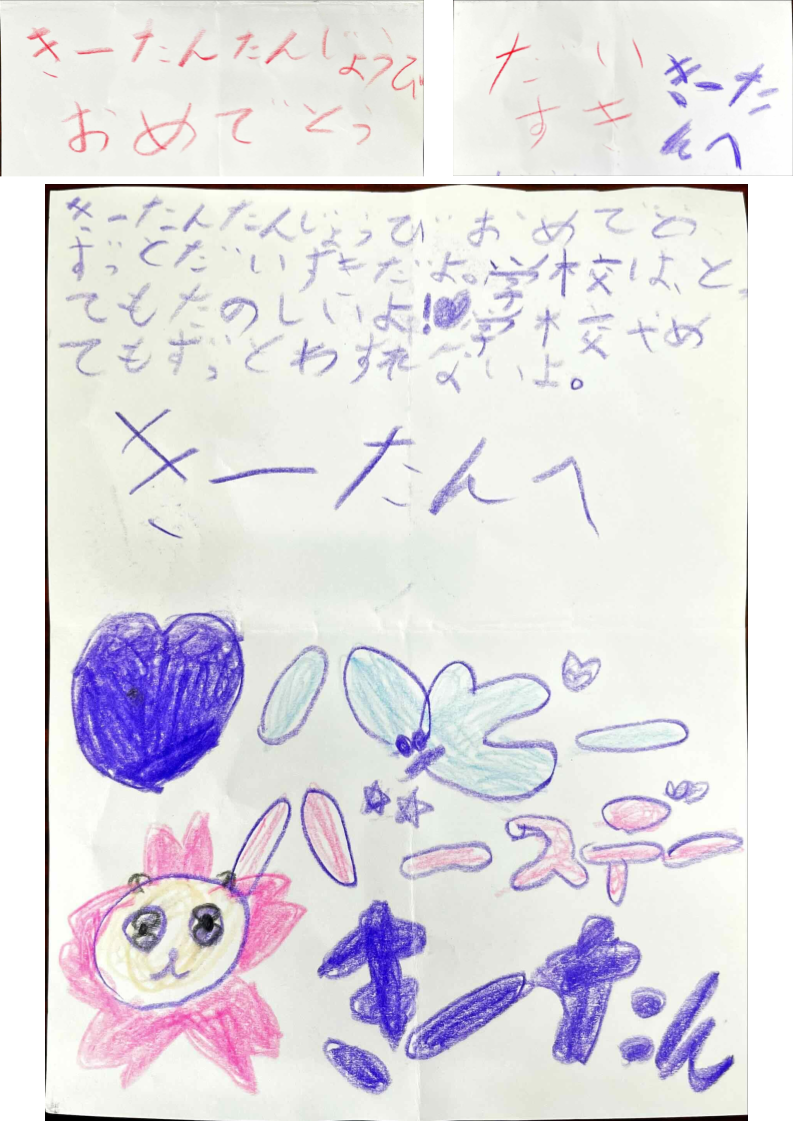 きーたんたんじょうび
おめでとう
だい
すき
きーた
んへ
きーたんたんじょうびおめでとう
ずっとだいずきだよ。学校は、と
てもたのしいよ!学校やめ
てもずっとわすれないよ。
きーたんへ
ハピー
バースデー
きーたん